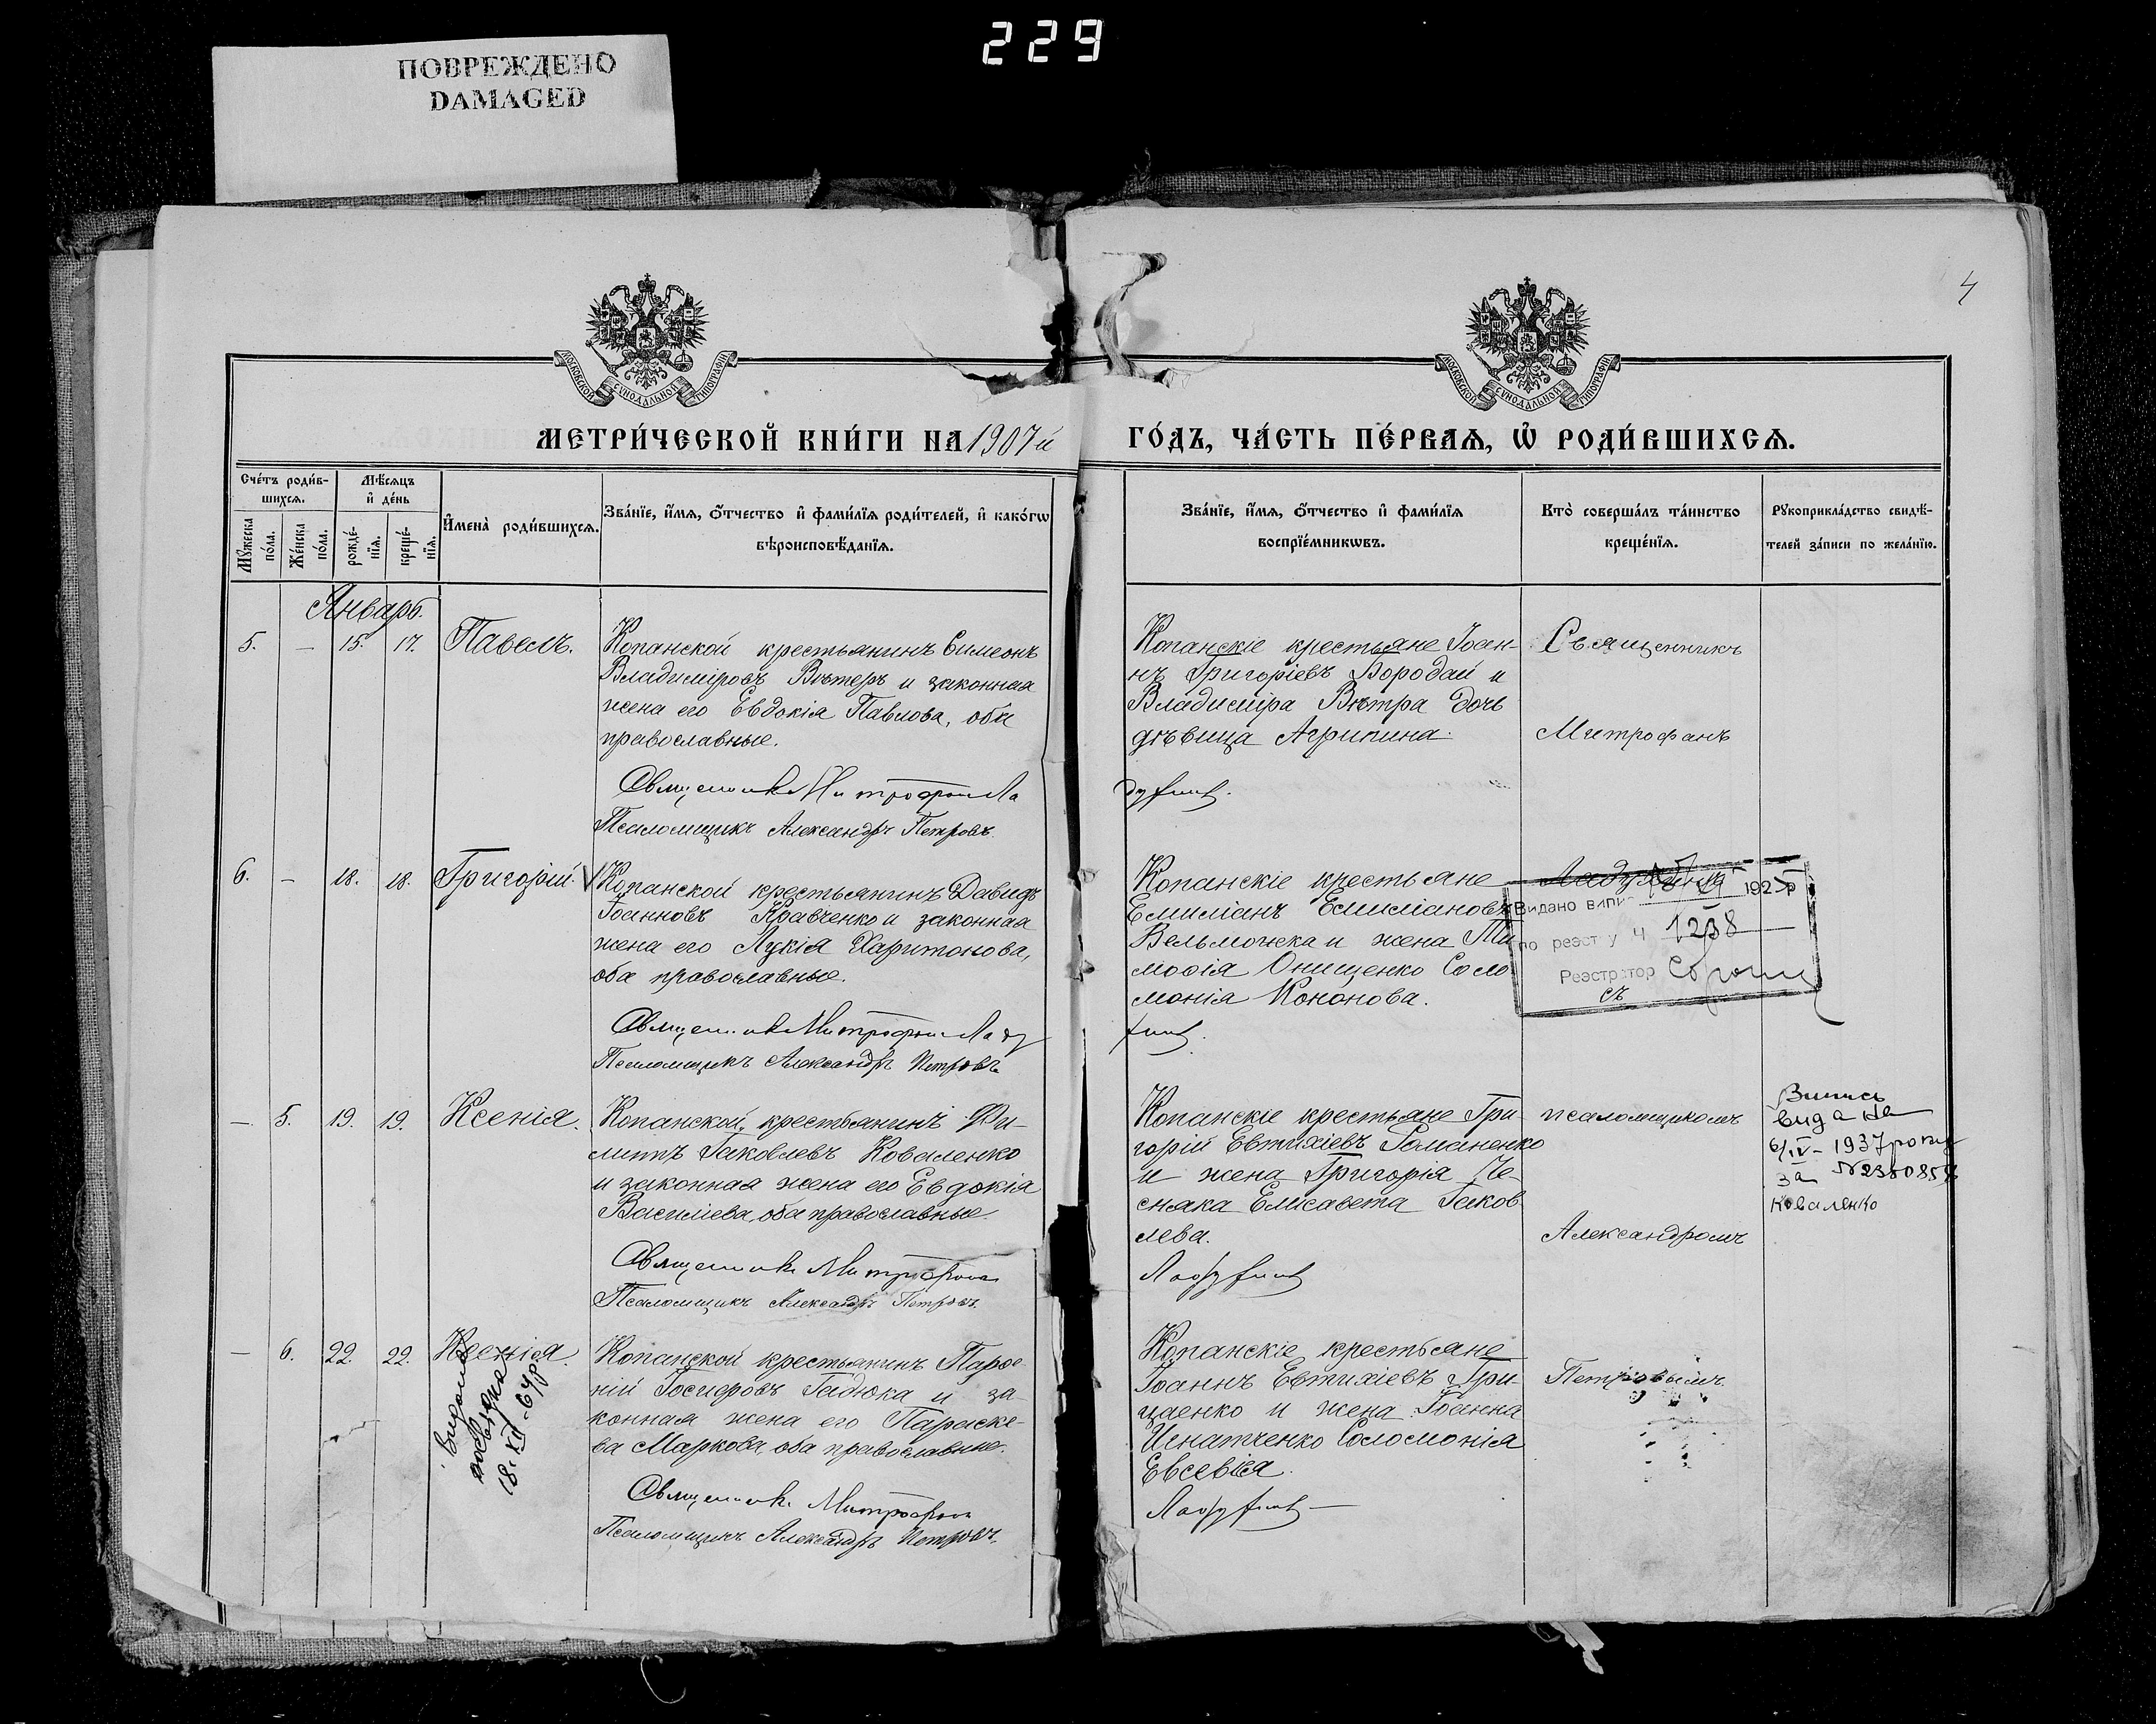 229
ПОВРЕЖДЕНО
DAMAGED
4
МОСКОВСКОЙ СѴНОДАЛЬНОЙ ТИПОГРАФІИ
МОСКОВСКОЙ СѴНОДАЛЬНОЙ ТИПОГРАФІИ
МЕТРИ́ЧЕСКОЙ КНИ́ГИ НА 1907й
ГО́ДЪ, ЧА́СТЬ ПЕ́РВАѦ, Ѡ҆ РОДИ́ВШИХСѦ.
Сче́тъ роди́в-
шихсѧ.
Мѣ́сѧцъ
и҆ де́нь
Мꙋ́жеска
по́ла.
Же́нска
по́ла.
рожде́-
нїѧ.
креще́-
нїѧ.
И҆мена̀ роди́вшихсѧ.
Зва́нїе, и҆́мѧ, ѻ҆́тчество и҆ фами́лїѧ роди́телей, и҆ како́гѡ
вѣроисповѣ́данїѧ.
Зва́нїе, и҆́мѧ, ѻ҆́тчество и҆ фами́лїѧ
воспрїе́мникѡвъ.
Кто̀ соверша́лъ та́инство
креще́нїѧ.
Рꙋкоприкла́дство свидѣ́-
телей за́писи по жела́нїю.
Январь.
5. — 15. 17. Павелъ.
Копанской крестьянинъ Симеонъ
Владиміровъ Вѣтеръ и законная
жена его Евдокія Павлова, оба
православные.
Священникъ Митрофанъ Ла
Псаломщикъ Александръ Петровъ.
Копанскіе крестьяне Іоан-
нъ Григоріевъ Бородай и
Владиміра Вѣтра дочь
дѣвица Агрипина.
Священникъ
Митрофанъ
6. — 18. 18. Григорій.
Копанской крестьянинъ Давидъ
Іоанновъ Кравченко и законная
жена его Лукія Харитонова,
оба православные.
Священникъ Митрофанъ Ладу
Псаломщикъ Александръ Петровъ
Копанскіе крестьяне
Емиліанъ Емиліановъ
Вельможка и жена Ти
моѳія Онищенко Соло
монія Кононова.
192
Видано випис
по реєстру Ч 1238
Реєстратор
съ
— 5. 19. 19. Ксенія.
Копанской крестьянинъ Фи-
липпъ Іаковлевъ Коваленко
и законная жена его Евдокія
Василіева, оба православные.
Священникъ Митрофанъ
Псаломщикъ Александръ Петровъ.
Копанскіе крестьяне Гри-
горій Евтихіевъ Романенко
и жена Григорія Че-
сняка Елисавета Іаков
лева.
псаломщикомъ
Александромъ
Випись
видана
6/IV- 1937 року
за
Коваленко
— 6. 22. 22. Ксенія.
Видано
18.XII-67р.
Копанской крестьянинъ Парѳе-
ній Іосифовъ Гадюка и за-
конная жена его Параске-
ва Маркова, оба православные.
Священникъ Митрофанъ
Псаломщикъ Александръ Петровъ.
Копанскіе крестьяне
Іоаннъ Евтихіевъ Гри
цаенко и жена Іоанна
Игнатченко Соломонія
Евсевія.
Петровымъ.